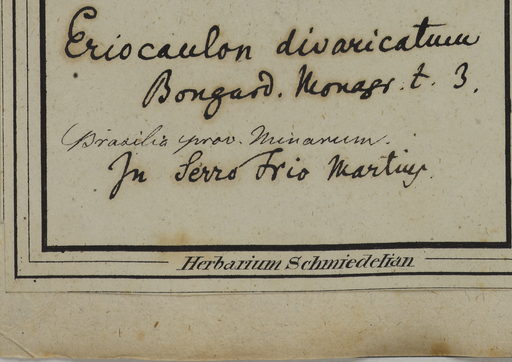 Eriocaulon divaricatum
Bongard. Monogr. t. 3.
Brasilia prov. Minarum.
In Serro Frio Martius.
Herbarium Schmiedelian